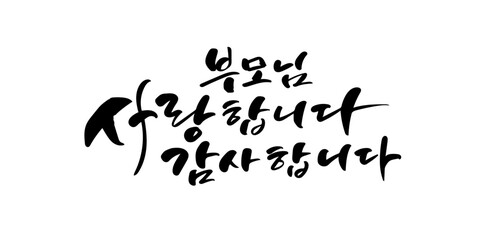 부모님
사랑합니다
감사합니다